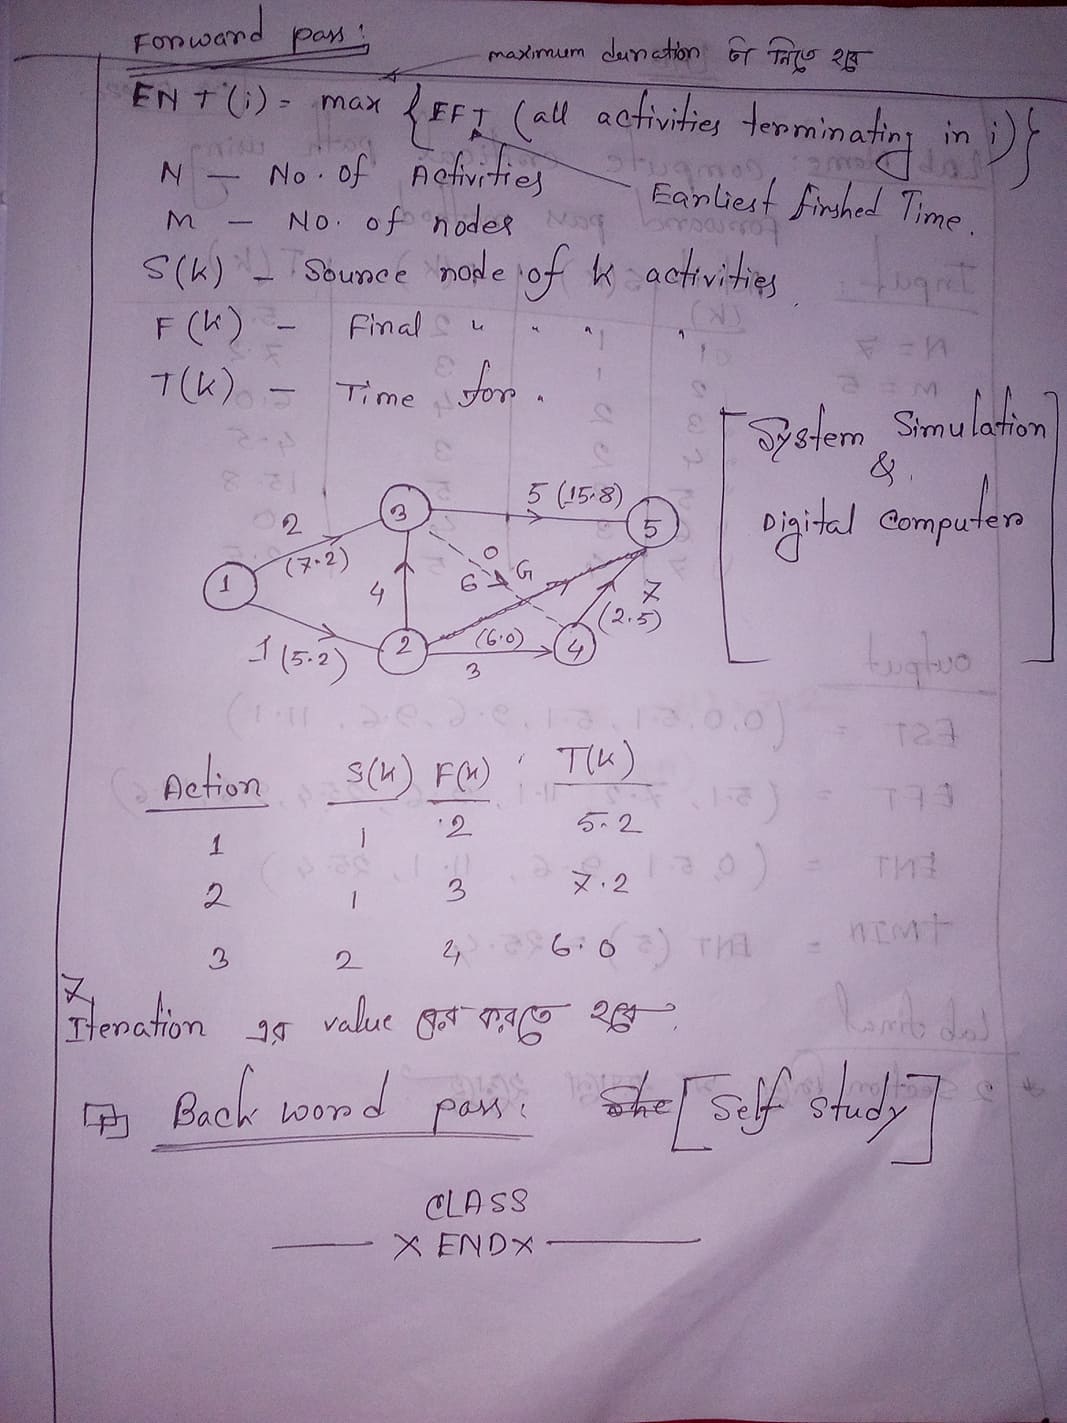 Forward pass:
maximum duration টা নিতে হবে
ENT(i) = max {EFT (all activities terminating in i)}
Earliest finshed Time.
N – No. of Activities
M – No. of nodes
S(k) – Source node of k activities.
F(k) – Final " " " "
T(k) – Time for "
[System Simulation
&
Digital Computer]
3
5 (15.8)
5
2
(7.2)
0
6
G
1
4
7
(2.5)
1 (5.2)
2
(6.0)
3
4
Action S(k) F(k) T(k)
1 1 2 5.2
2 1 3 7.2
3 2 4 6.0
7
Iteration এর value বের করতে হবে.
Back word pass: [Self study]
CLASS
X END X